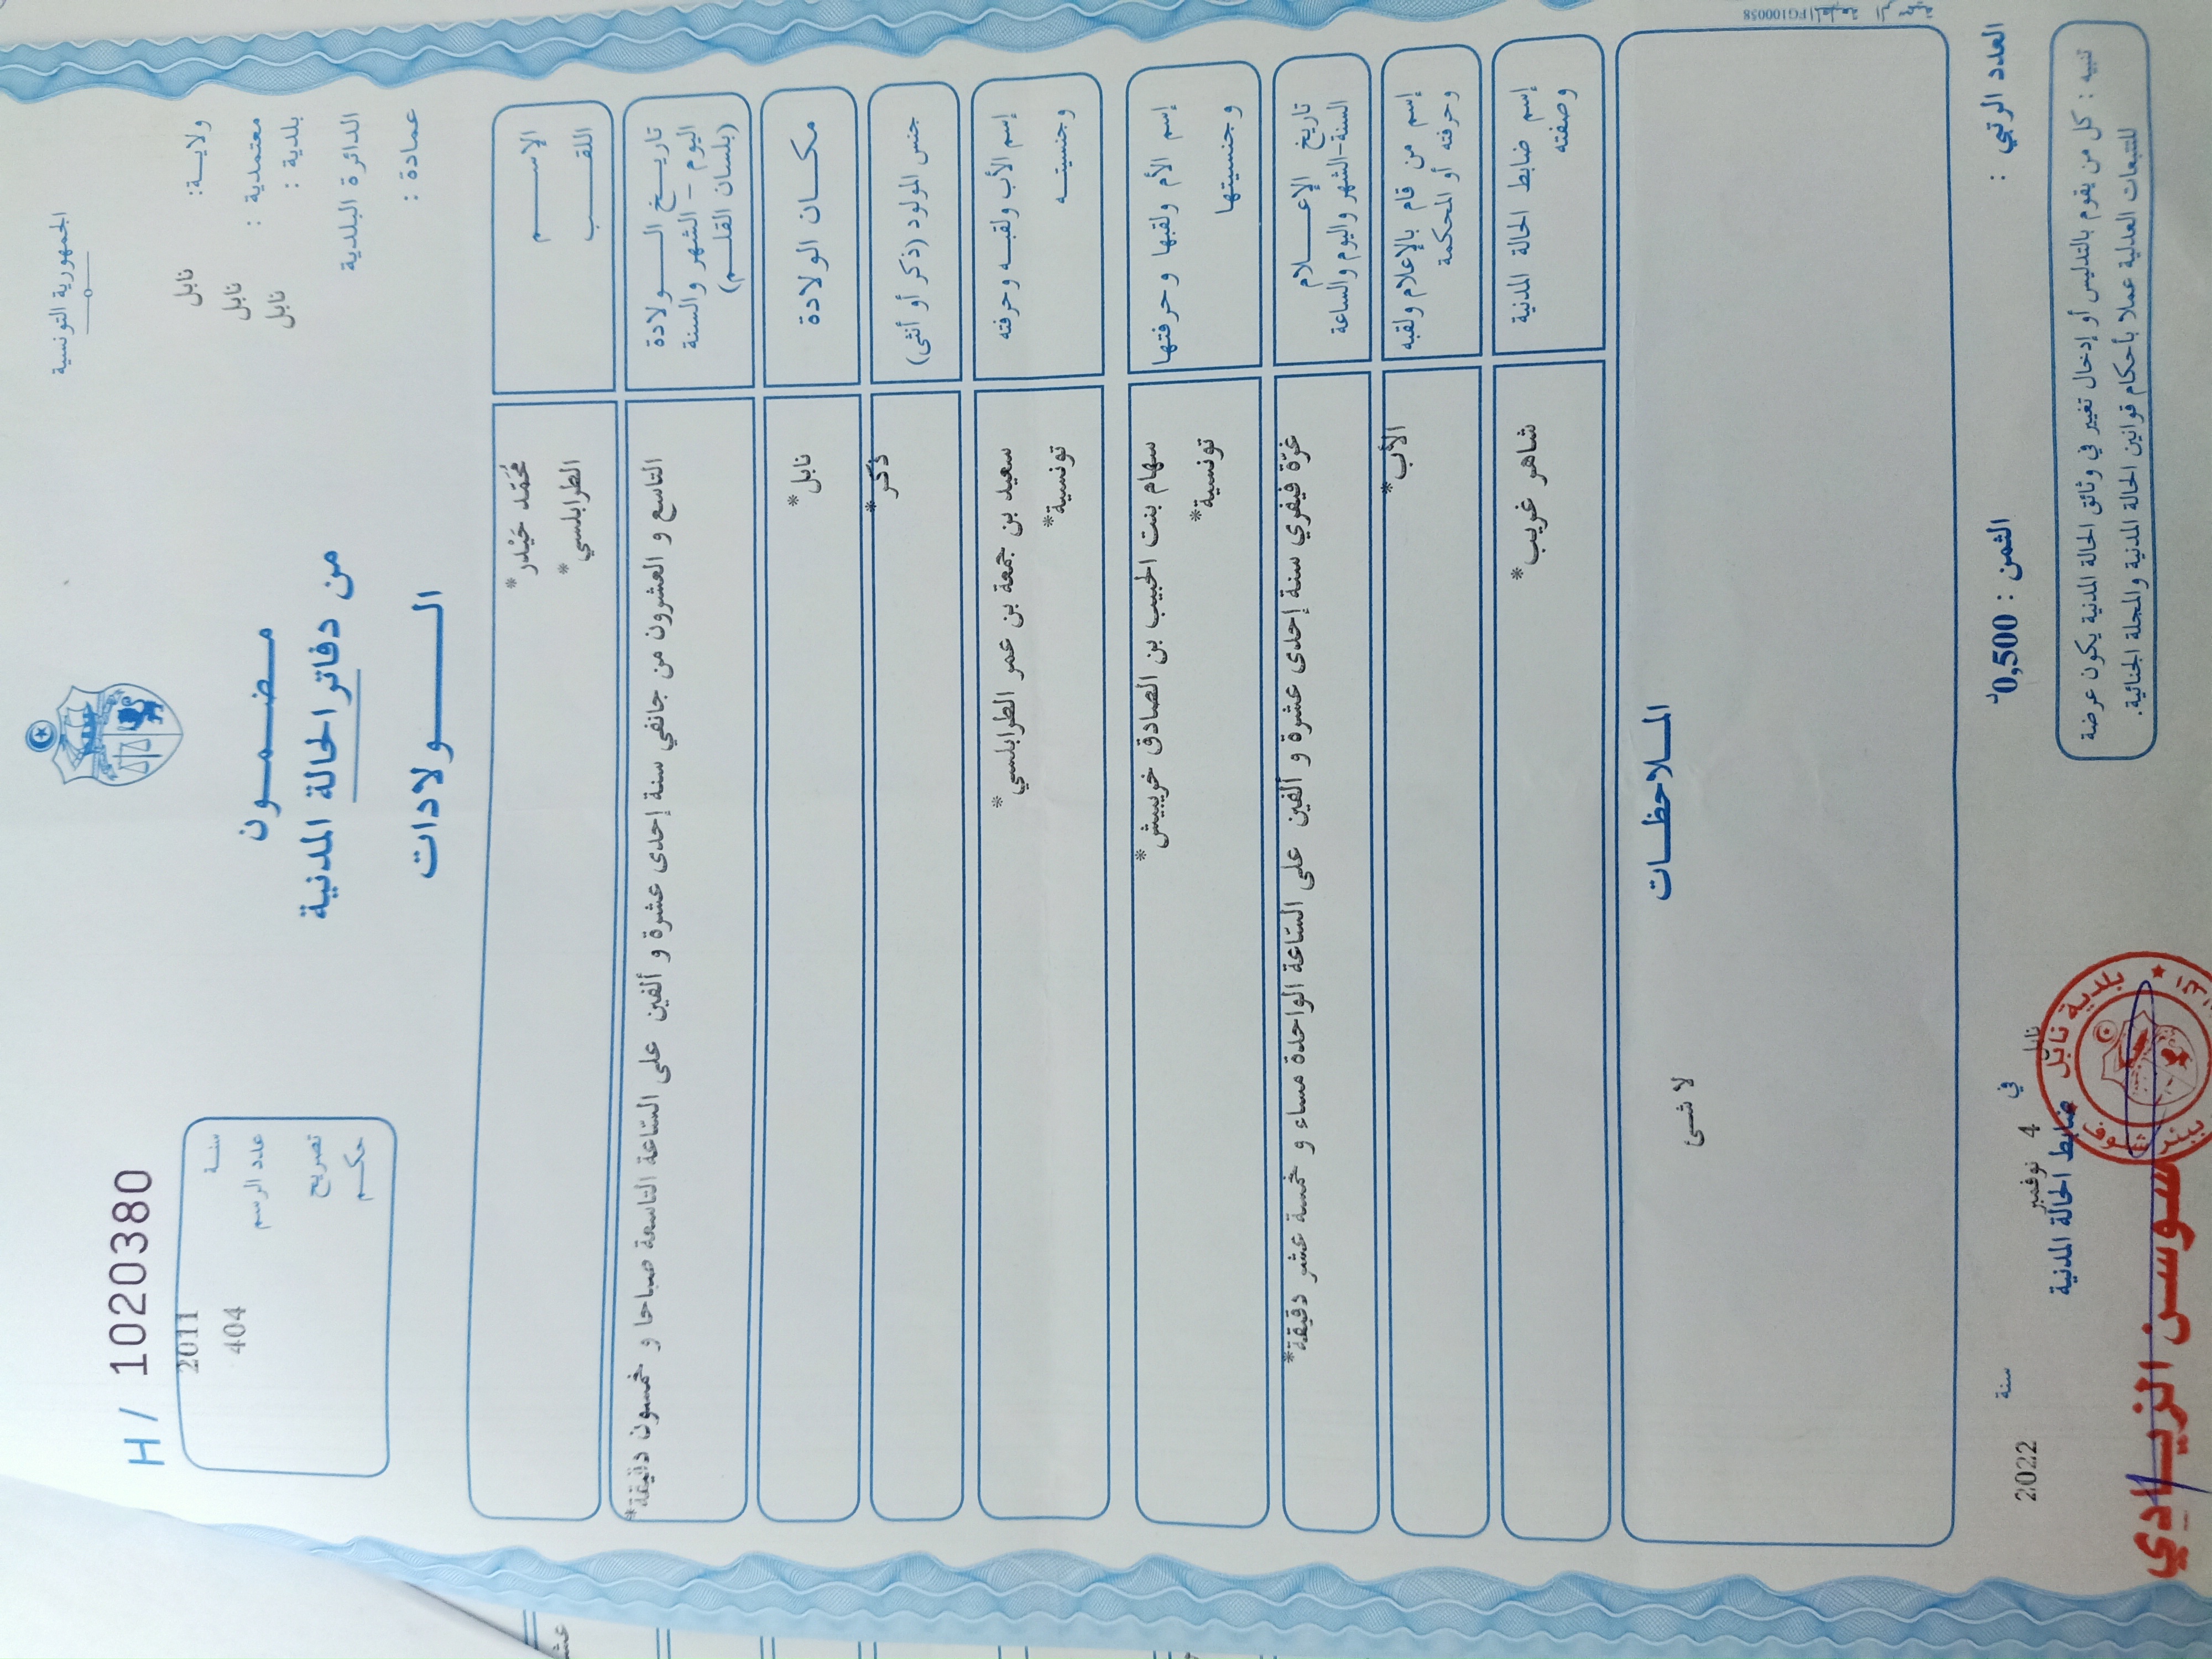 الجمهورية التونسية
ولايـــة: نابل
معتمدية : نابل
بلدية : نابل
الدائرة البلدية
عمادة :
H / 1020380
سنـــة 2011
عدد الرسم 404
تصريح
حكـــم
مـضـمــون
من دفاتر الحالة المدنية
الـــولادات
الإســـم مُحَمّد حَيْدر*
اللقـــب الطرابلسي*
تاريــخ الـــولادة
اليوم - الشهر والسنة
(بلسان القلـــم)
التاسع و العشرون من جانفي سنة إحدى عشرة و ألفين على السّاعة التاسعة صباحا و خمسون دقيقة*
مكـــان الولادة نابل*
جنس المولود (ذكر أو أنثى) ذكر*
إسم الأب ولقبـــه وحرفته سعيد بن جمعة بن عمر الطرابلسي*
وجنسيتـــه تونسية*
إسم الأم ولقبها وحرفتها سهام بنت الحبيب بن الصادق خريبيش*
وجنسيتها تونسية*
تاريخ الإعـــلام
السنة-الشهر واليوم والساعة
غرّة فيفري سنة إحدى عشرة و ألفين على السّاعة الواحدة مساء و خمسة عشر دقيقة*
إسم من قام بالإعلام ولقبه
وحرفته أو المحكمة
الأب*
إسم ضابط الحالة المدنية
وصفته
شاهر غريب*
المـــلاحظـــات
لا شىء
العدد الرتبي :
الثمن : 0,500د
نابل في 4 نوفمبر سنة 2022
ضابط الحالة المدنية
بلدية نابل
سوسن الزيـــادي
تنبيه : كل من يقوم بالتدليس أو إدخال تغيير في وثائق الحالة المدنية يكون عرضة
للتتبعات العدلية عملا بأحكام قوانين الحالة المدنية والمجلة الجنائية.
FG100058